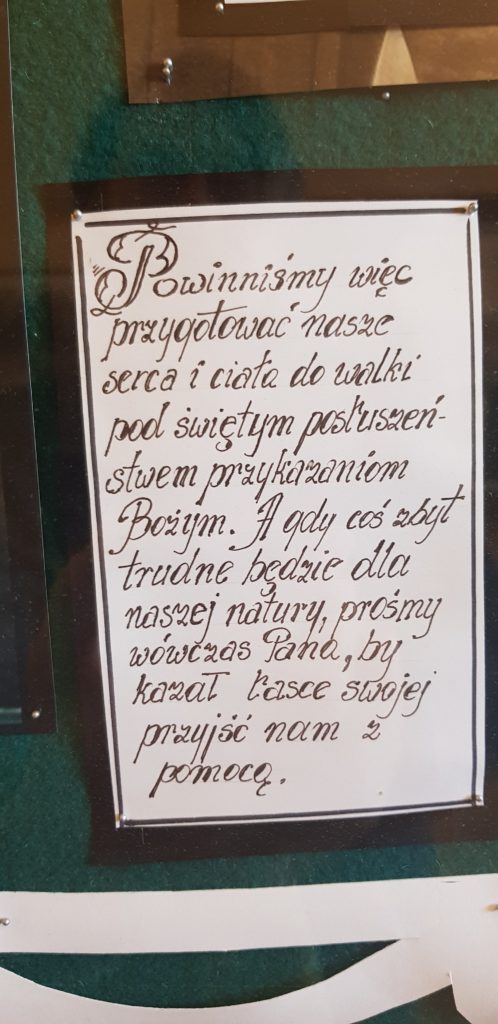 Powinniśmy więc
przygotować nasze
serca i ciała do walki
pod świętym posłuszeń-
stwem przykazaniom
Bożym. A gdy coś zbyt
trudne będzie dla
naszej natury, prośmy
wówczas Pana, by
kazał łasce swojej
przyjść nam z
pomocą.